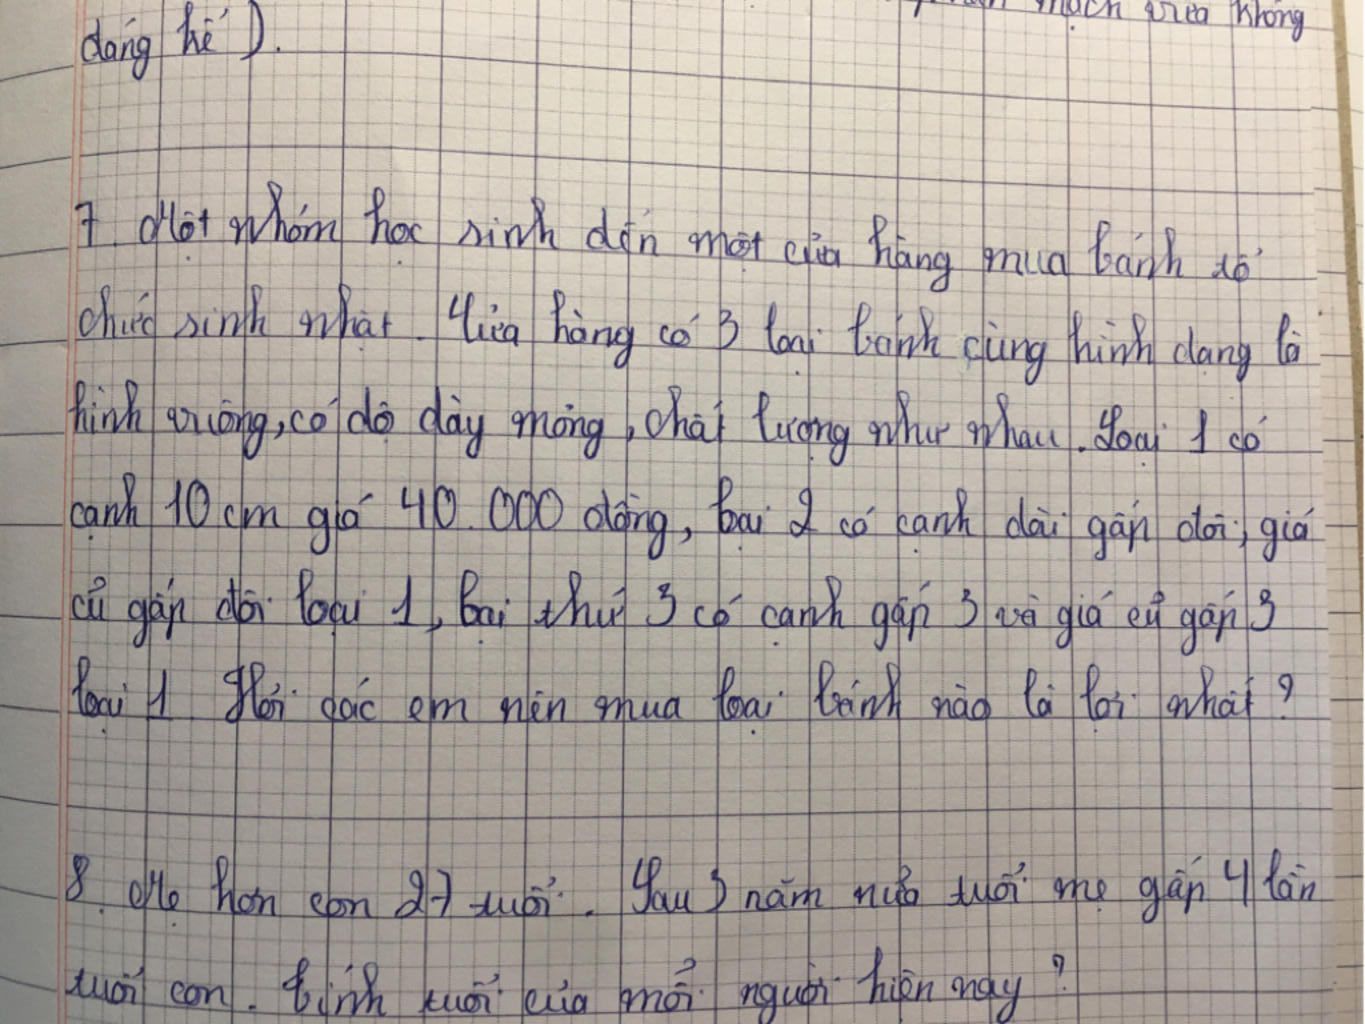 mạch vừa không
đáng kể ).
7. Một nhóm học sinh đến một cửa hàng mua bánh tổ
chức sinh nhật. Cửa hàng có 3 loại bánh cùng hình dạng là
hình vuông, có độ dày mỏng, chất lượng như nhau. Loại 1 có
cạnh 10 cm giá 40.000 đồng, loại 2 có cạnh dài gấp đôi, giá
cũ gấp đôi loại 1, loại thứ 3 có cạnh gấp 3 và giá cũ gấp 3
loại 1 Hỏi các em nên mua loại bánh nào là lợi nhất ?
8. Mẹ hơn con 27 tuổi. Sau 3 năm nữa tuổi mẹ gấp 4 lần
tuổi con. Tính tuổi của mỗi người hiện nay ?